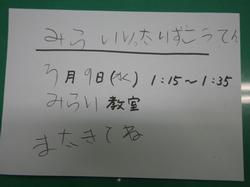 みらいいったりずこうてん
3月9日(水) 1:15～1:35
みらい教室
またきてね